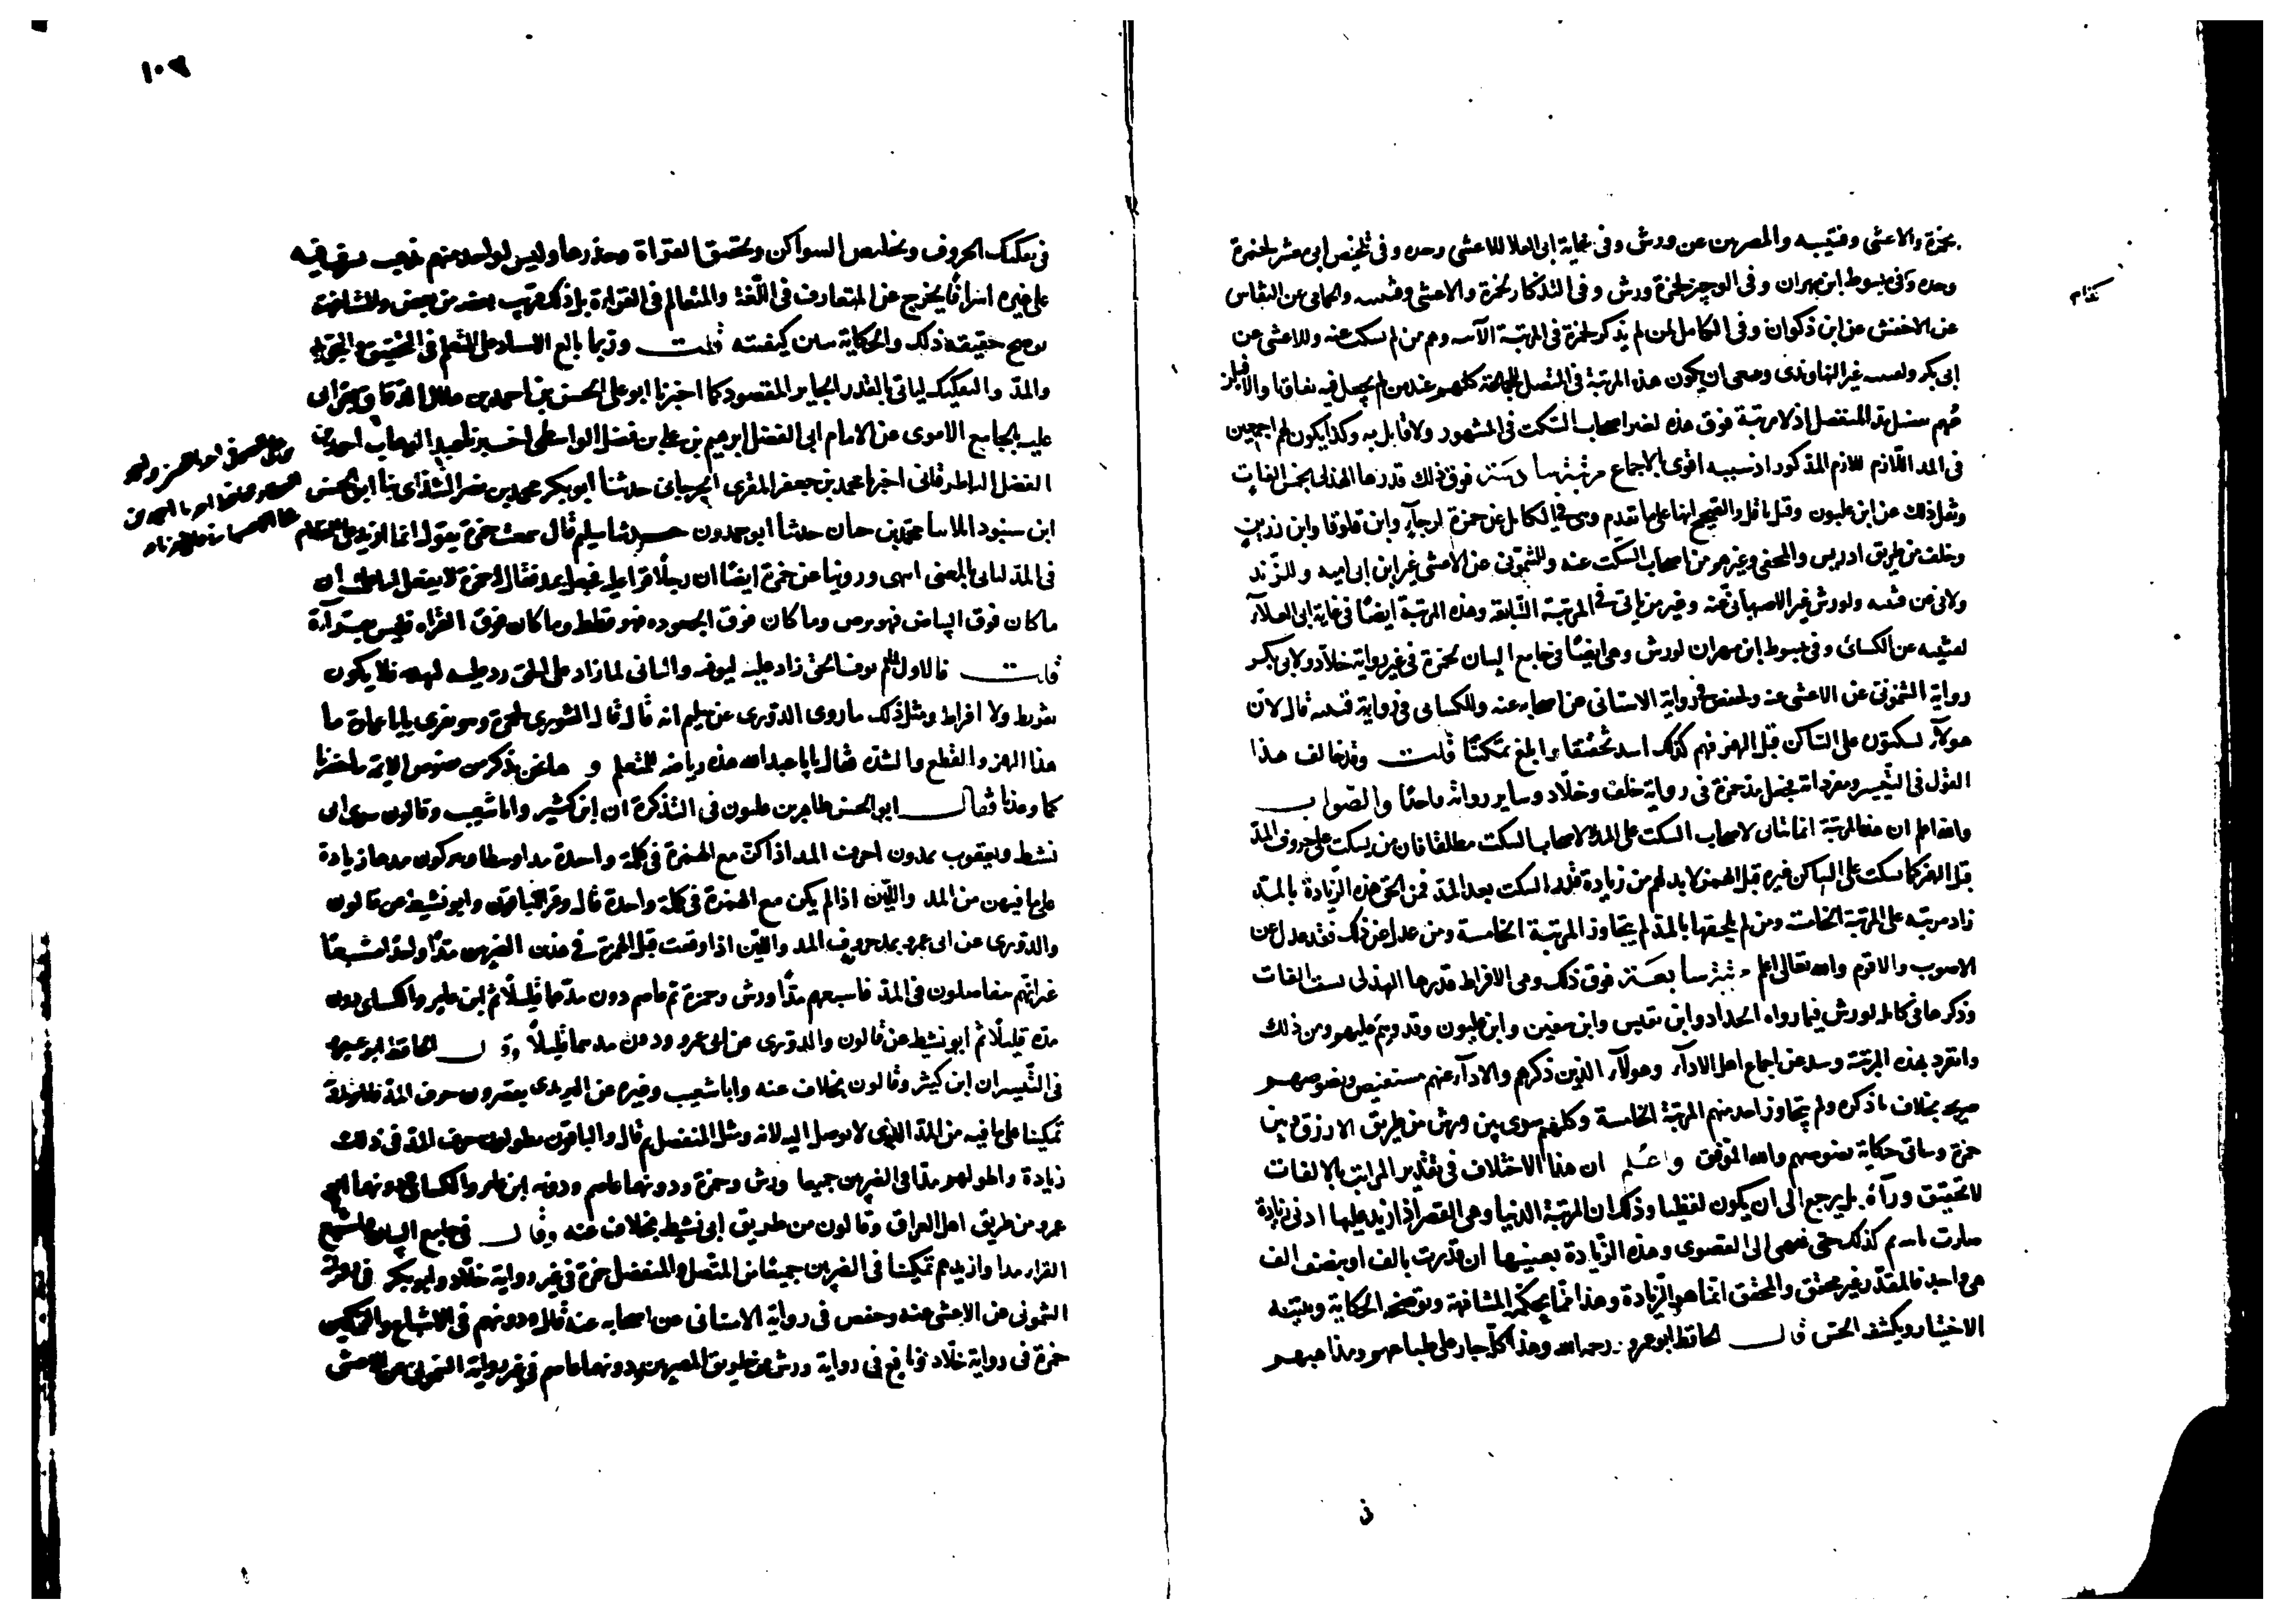 لحمزة والاعشى وقتيبه والمصريين عن ورش وفى غاية ابى العلا للاعشى وحده وفى تلخيص ابى معشر لحمزة
وحده وفى مبسوط ابن مهران وفى الوجيز لحمزة وورش وفى التذكار لحمزة والاعشى وقتيبه والحمامى عن النقاش
عن الاخفش عن ابن ذكوان وفى الكامل لمن لم يذكر لحمزة فى المرتبة الآتيه وهم من لم يسكت عنه وللاعشى عن
ابى بكر ولقتيبه غير النهاوندى وينبغى ان يكون هذه المرتبة فى المتصل للجماعة كلهم عند من لم يجعل فيه تفاوتا والا فيلزمهم
تفضيل مد المنفصل اذ لا مرتبة فوق هذه لغير اصحاب السكت فى المشهور ولا قايل به وكذا يكون لهم اجمعين
فى المد اللازم للازم المذكور اذ سببه اقوى بالاجماع مرتبة سادسة فوق ذلك قدرها الهذلى بخمس الفات
ونقل ذلك عن ابن غلبون وقيل باقل والصحيح انها على ما تقدم وهى فى الكامل عن حمزة لرجاء وابن قلوقا وابن رزين
وخلف من طريق ادريس والمحفى وغيرهم من اصحاب السكت عنه وللشمونى عن الاعشى غير ابن ابى اميه وللزند
ولاى عن قتيبه ولورش غير الاصبهانى عنه وغير من ياتى فى المرتبة السابعة وهذه المرتبة ايضا فى غاية ابى العلاء
لقتيبه عن الكسائ وفى مبسوط ابن مهران لورش وهى ايضا فى جامع البيان لحمزة فى غير رواية خلاد ولابى بكر
رواية الشمونى عن الاعشى عنه ولحفص فى رواية الاشنانى عن اصحابه عنه وللكسائى فى رواية قتيبه قال لان
هولاء يسكتون على الساكن قبل الهمز فهم كذلك اشد تحقيقا وابلغ تمكينا قلت وقد خالف هذا
القول فى التيسير ومفرداته فجعل مد حمزة فى رواية خلف وخلاد وساير رواته واحدا والصواب
والله اعلم ان هذه المرتبة انما تتاتى لاصحاب السكت على المد لا لاصحاب السكت مطلقا فان من يسكت على حروف المد
قبل الهمز كما يسكت على الساكن غيره قبل الهمز لا بد لهم من زيادة قدر السكت بعد المد فمن الحق هذه الزيادة بالمد
زاد مرتبه على المرتبة الخامسة ومن لم يلحقها بالمد لم يتجاوز المرتبة الخامسة ومن عدل عن ذلك فقد عدل عن
الاصوب والاقوم والله تعالى اعلم مرتبة سابعة فوق ذلك وهى الافراط قدرها الهذلى بست الفات
وذكرها فى كامله لورش فيما رواه الحداد وابن نفيس وابن سفين وابن غلبون وقد وهم عليهم ومن ذلك
وانفرد بهذه المرتبة وشذ عن اجماع اهل الاداء وهولاء الذين ذكرهم والاداء عنهم مستفيض ونصوصهم
صريحه بخلاف ما ذكره ولم يتجاوز احد منهم المرتبة الخامسة وكلهم سوى بين ورش من طريق الازرق وبين
حمزة وساتى حكاية نصوصهم والله الموفق واعلم ان هذا الاختلاف فى تقدير المراتب بالالفات
لا تحقيق وراءه بل يرجع الى ان يكون لفظيا وذلك ان المرتبة الدنيا وهى القصر اذا زيد عليها ادنى زيادة
صارت ثانيه ثم كذلك حتى تنتهى الى القصوى وهذه الزيادة بعينها ان قدرت بالف او بنصف الف
هى واحدة فالمقدر غير محقق والمحقق انما هو الزيادة وهذا مما تحكمه المشافهة وتوضحه الحكاية ويبينه
الاختبار ويكشفه الحس قال الحافظ ابو عمرو رحمه الله وهذا كله جار على طباعهم ومذاهبهم
١٠٧
فى تفكيك الحروف وتخليص السواكن وتحقيق القراة وحدرها وليس لواحد منهم مذهب يسرف فيه
على غيره اسرافا يخرج عن المتعارف فى اللغة والمتعالم فى القراءة بل ذلك قريب بعضه من بعض والمشافهة
توضح حقيقه ذلك والحكاية تبين كيفيته قلت وربما بالغ الاستاذ على المتعلم فى التحقيق والتجويد
والمد والتفكيك لياتى بالقدر الجايز المقصود كما اخبرنا ابو على الحسن بن احمد بن هلال الدقاق بقراءتى
عليه بالجامع الاموى عن الامام ابى الفضل ابرهيم بن على بن فضل الواسطى اخبرنا
الفضل الباطرقانى اخبرنا محمد بن جعفر المقرى الجرجانى حدثنا ابو بكر محمد بن نصر الشذائى ثنا ابو الحسن
ابن شنبوذ املاء ثنا محمد بن حيان حدثنا ابو حمدون حدثنا سليم قال سمعت حمزة يقول انما ازيد على الغلام
فى المد لياتى بالمعنى انتهى وروينا عن حمزة ايضا ان رجلا قرا عليه فجعل يمد فقال له حمزة لا تفعل اما علمت ان
ما كان فوق البياض فهو برص وما كان فوق الجعوده فهو قطط وما كان فوق القراة فليس بقراءة
قلت فالاول لما لم يوف الحق زاد عليه ليوفيه والثانى لما زاد على الحق رد عليه ليهديه فلا يكون
تفريط ولا افراط ومثل ذلك ما روى الدورى عن سليم انه قال قال الثورى لحمزة وهو يقرى يابا عمارة ما
هذا الهمز والقطع والشده فقال يابا عبد الله هذه رياضه للمتعلم و ها نحن نذكر من نصوص الايمة ما حضرنا
كما وعدنا فقال ابو الحسن طاهر بن غلبون فى التذكرة ان ابن كثير وابا شعيب وقالون سوى ابى
نشيط ويعقوب يمدون احرف المد اذا كن مع الهمزة فى كلمة واحدة مدا وسطا ويتركون مدها زيادة
على ما فيهن من المد واللين اذا لم يكن مع الهمزة فى كلمة واحدة قال وقرا الباقون وابو نشيط عن قالون
والدورى عن ابى عمرو بمد حروف المد واللين اذا وقعت قبل الهمزة فى هذين الضربين مدا واحدا مشبعا
غير انهم يتفاضلون فى المد فاشبعهم مدا ورش وحمزة ثم عاصم دون مدهما قليلا ثم ابن عامر والكسائى دون
مده قليلا ثم ابو نشيط عن قالون والدورى عن ابى عمرو دون مدهما قليلا وقال الحافظ ابو عمرو
فى التيسير ان ابن كثير وقالون بخلاف عنه وابا شعيب وغيره عن اليزيدى يقصرون حرف المد فلا يزيدونه
تمكينا على ما فيه من المد الذى لا يوصل اليه الا به ومثل المنفصل ثم قال والباقون يطولون حرف المد فى ذلك
زيادة واطولهم مدا فى الضربين جميعا ورش وحمزة ودونهما عاصم ودونه ابن عامر والكسائى ودونهما ابو
عمرو من طريق اهل العراق وقالون من طريق ابى نشيط بخلاف عنه وقال فى جامع البيان واشبع
القراء مدا وازيدهم تمكينا فى الضربين جميعا من المتصل والمنفصل حمزة فى غير رواية خلاد وابو بكر فى رواية
الشمونى عن الاعشى عنه وحفص فى رواية الاشنانى عن اصحابه عنه قال ودونهم فى الاشباع والتمكين
حمزة فى رواية خلاد ونافع فى رواية ورش من طريق المصريين ودونهما عاصم فى غير رواية الشمونى عن الاعشى